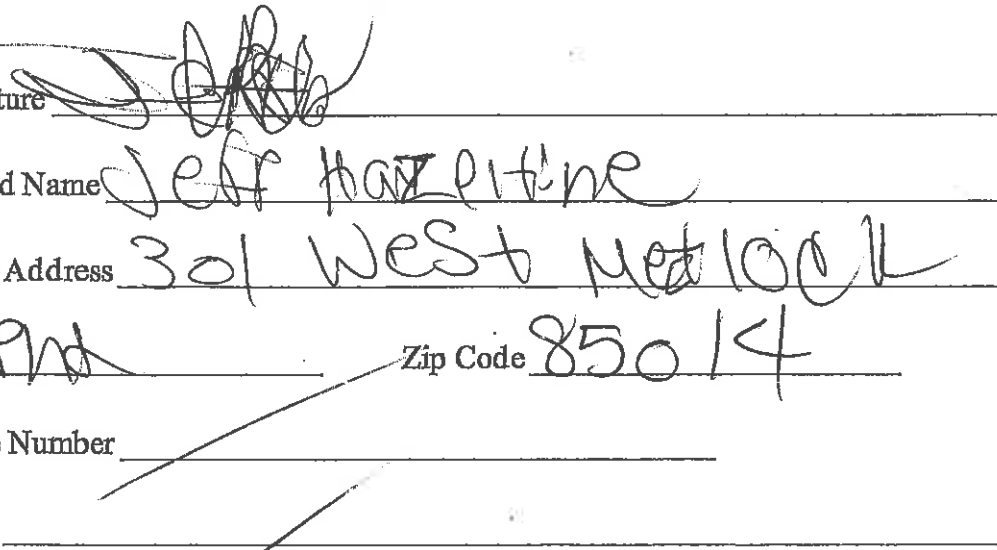 ture
d Name Jeff Hazeltine
Address 301 West Medlock
Zip Code 85014
Number